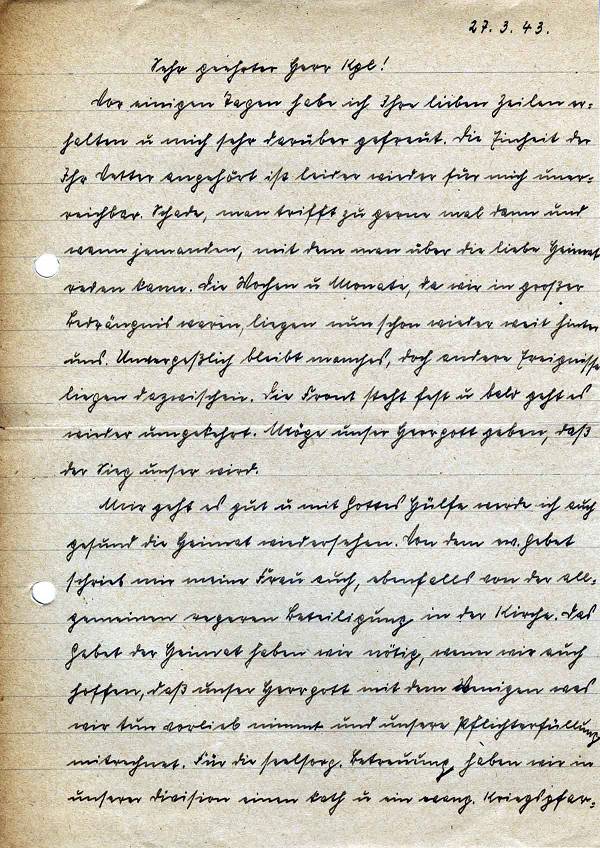 27. 3. 43.
Sehr geehrter Herr Kpl!
Vor einigen Tagen habe ich Ihre lieben Zeilen er-
halten u mich sehr darüber gefreut. Die Einheit der
Ihr Vetter angehört ist leider wieder für mich uner-
reichbar. Schade, man trifft zu gerne mal dann und
wann jemanden, mit dem man über die liebe Heimat
reden kann. Die Wochen u Monate, da wir in großer
Bedrängnis waren, liegen nun schon wieder weit hinter
uns. Unvergeßlich bleibt manches, doch andere Ereignisse
liegen dazwischen. Die Front steht fest u bald geht es
wieder umgekehrt. Möge unser Herrgott geben, daß
der Sieg unser wird.
Mir geht es gut u mit Gottes Hülfe werde ich auch
gesund die Heimat wiedersehen. Von dem ew. Gebet
schrieb mir meine Frau auch, ebenfalls von der all-
gemeinen regeren Beteiligung in der Kirche. Das
Gebet der Heimat haben wir nötig, wenn wir auch
hoffen, daß unser Herrgott mit dem Wenigen was
wir tun vorlieb nimmt und unsere Pflichterfüllung
mitrechnet. Für die seelsorg. Betreuung haben wir in
unserer Division einen kath u ein evang. Kriegspfar-